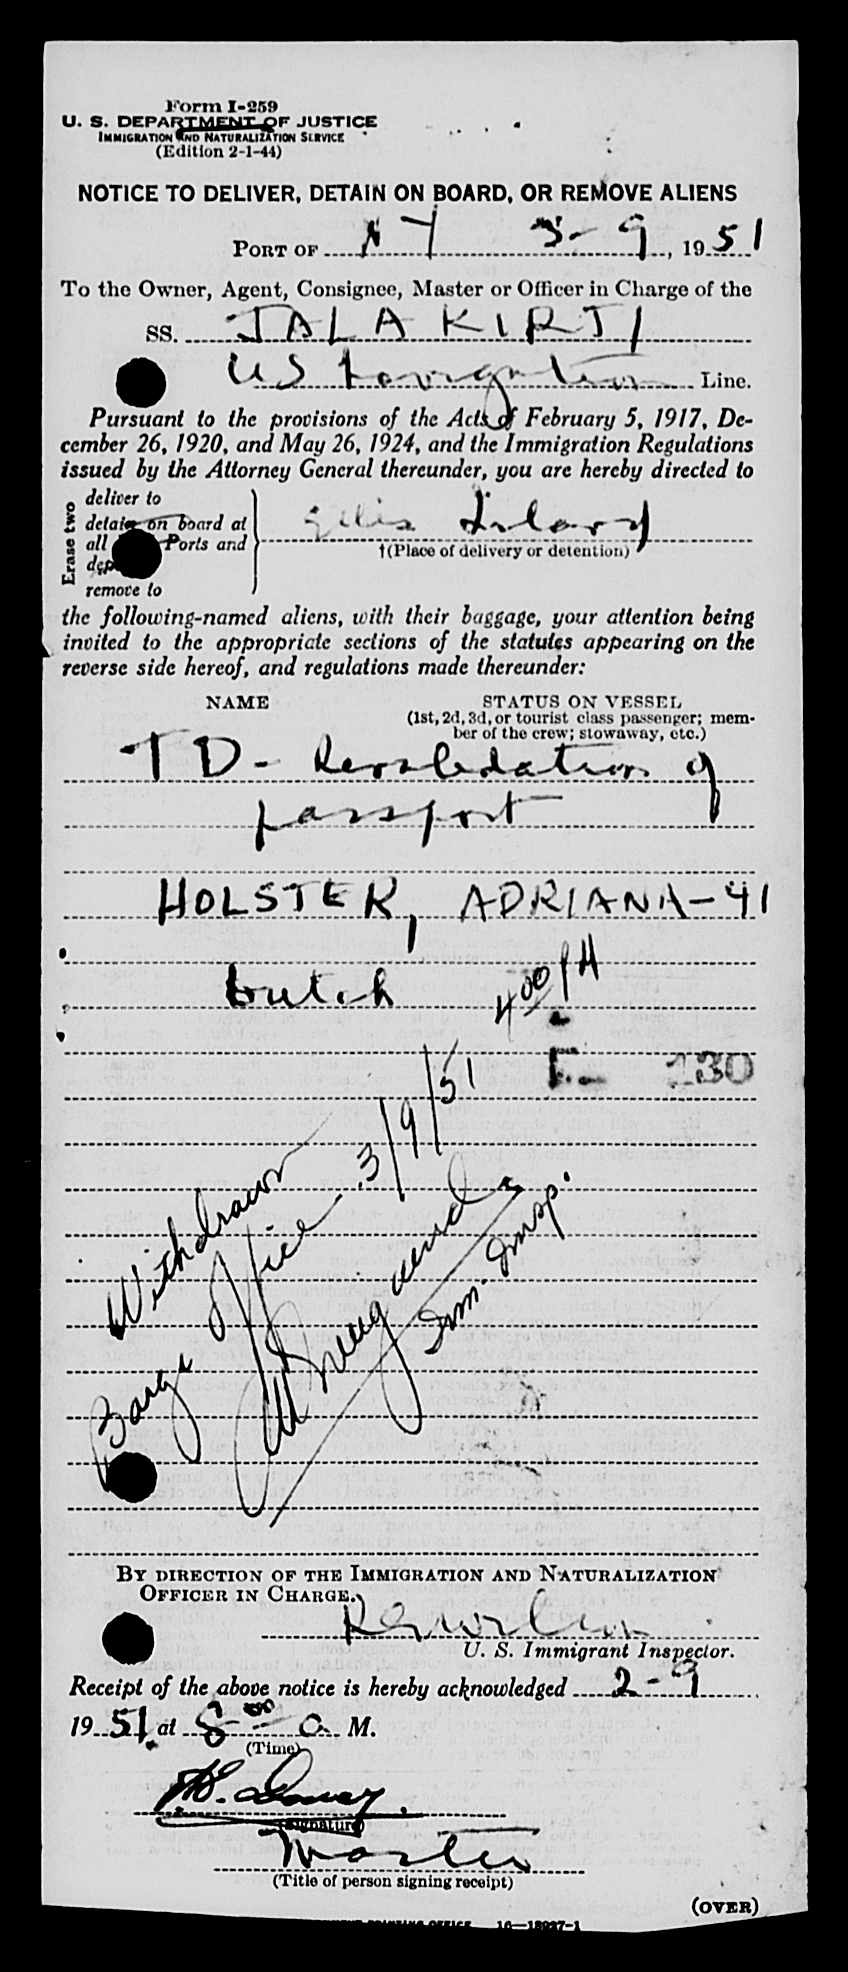 Form I-259
U. S. DEPARTMENT OF JUSTICE
IMMIGRATION AND NATURALIZATION SERVICE
(Edition 2-1-44)
NOTICE TO DELIVER, DETAIN ON BOARD, OR REMOVE ALIENS
PORT OF NY 3-9, 1951
To the Owner, Agent, Consignee, Master or Officer in Charge of the
SS. JALAKIRTI
US Navigation Line.
Pursuant to the provisions of the Acts of February 5, 1917, De-
cember 26, 1920, and May 26, 1924, and the Immigration Regulations
issued by the Attorney General thereunder, you are hereby directed to
Erase two
deliver to
detain on board at
all Ports and
remove to
Ellis Island
†(Place of delivery or detention)
the following-named aliens, with their baggage, your attention being
invited to the appropriate sections of the statutes appearing on the
reverse side hereof, and regulations made thereunder:
NAME STATUS ON VESSEL
(1st, 2d, 3d, or tourist class passenger; mem-
ber of the crew; stowaway, etc.)
TD - Revalidation of
passport
HOLSTER, ADRIANA-41
Dutch 4 00 PM
E- 130
Withdrawn
Barge Office 3/9/51
Imm. Insp.
BY DIRECTION OF THE IMMIGRATION AND NATURALIZATION
OFFICER IN CHARGE.
U. S. Immigrant Inspector.
Receipt of the above notice is hereby acknowledged 2-9
1951 at 8 00 a M.
(Time)
(Signature)
Master
(Title of person signing receipt)
(OVER)
16—18927-1